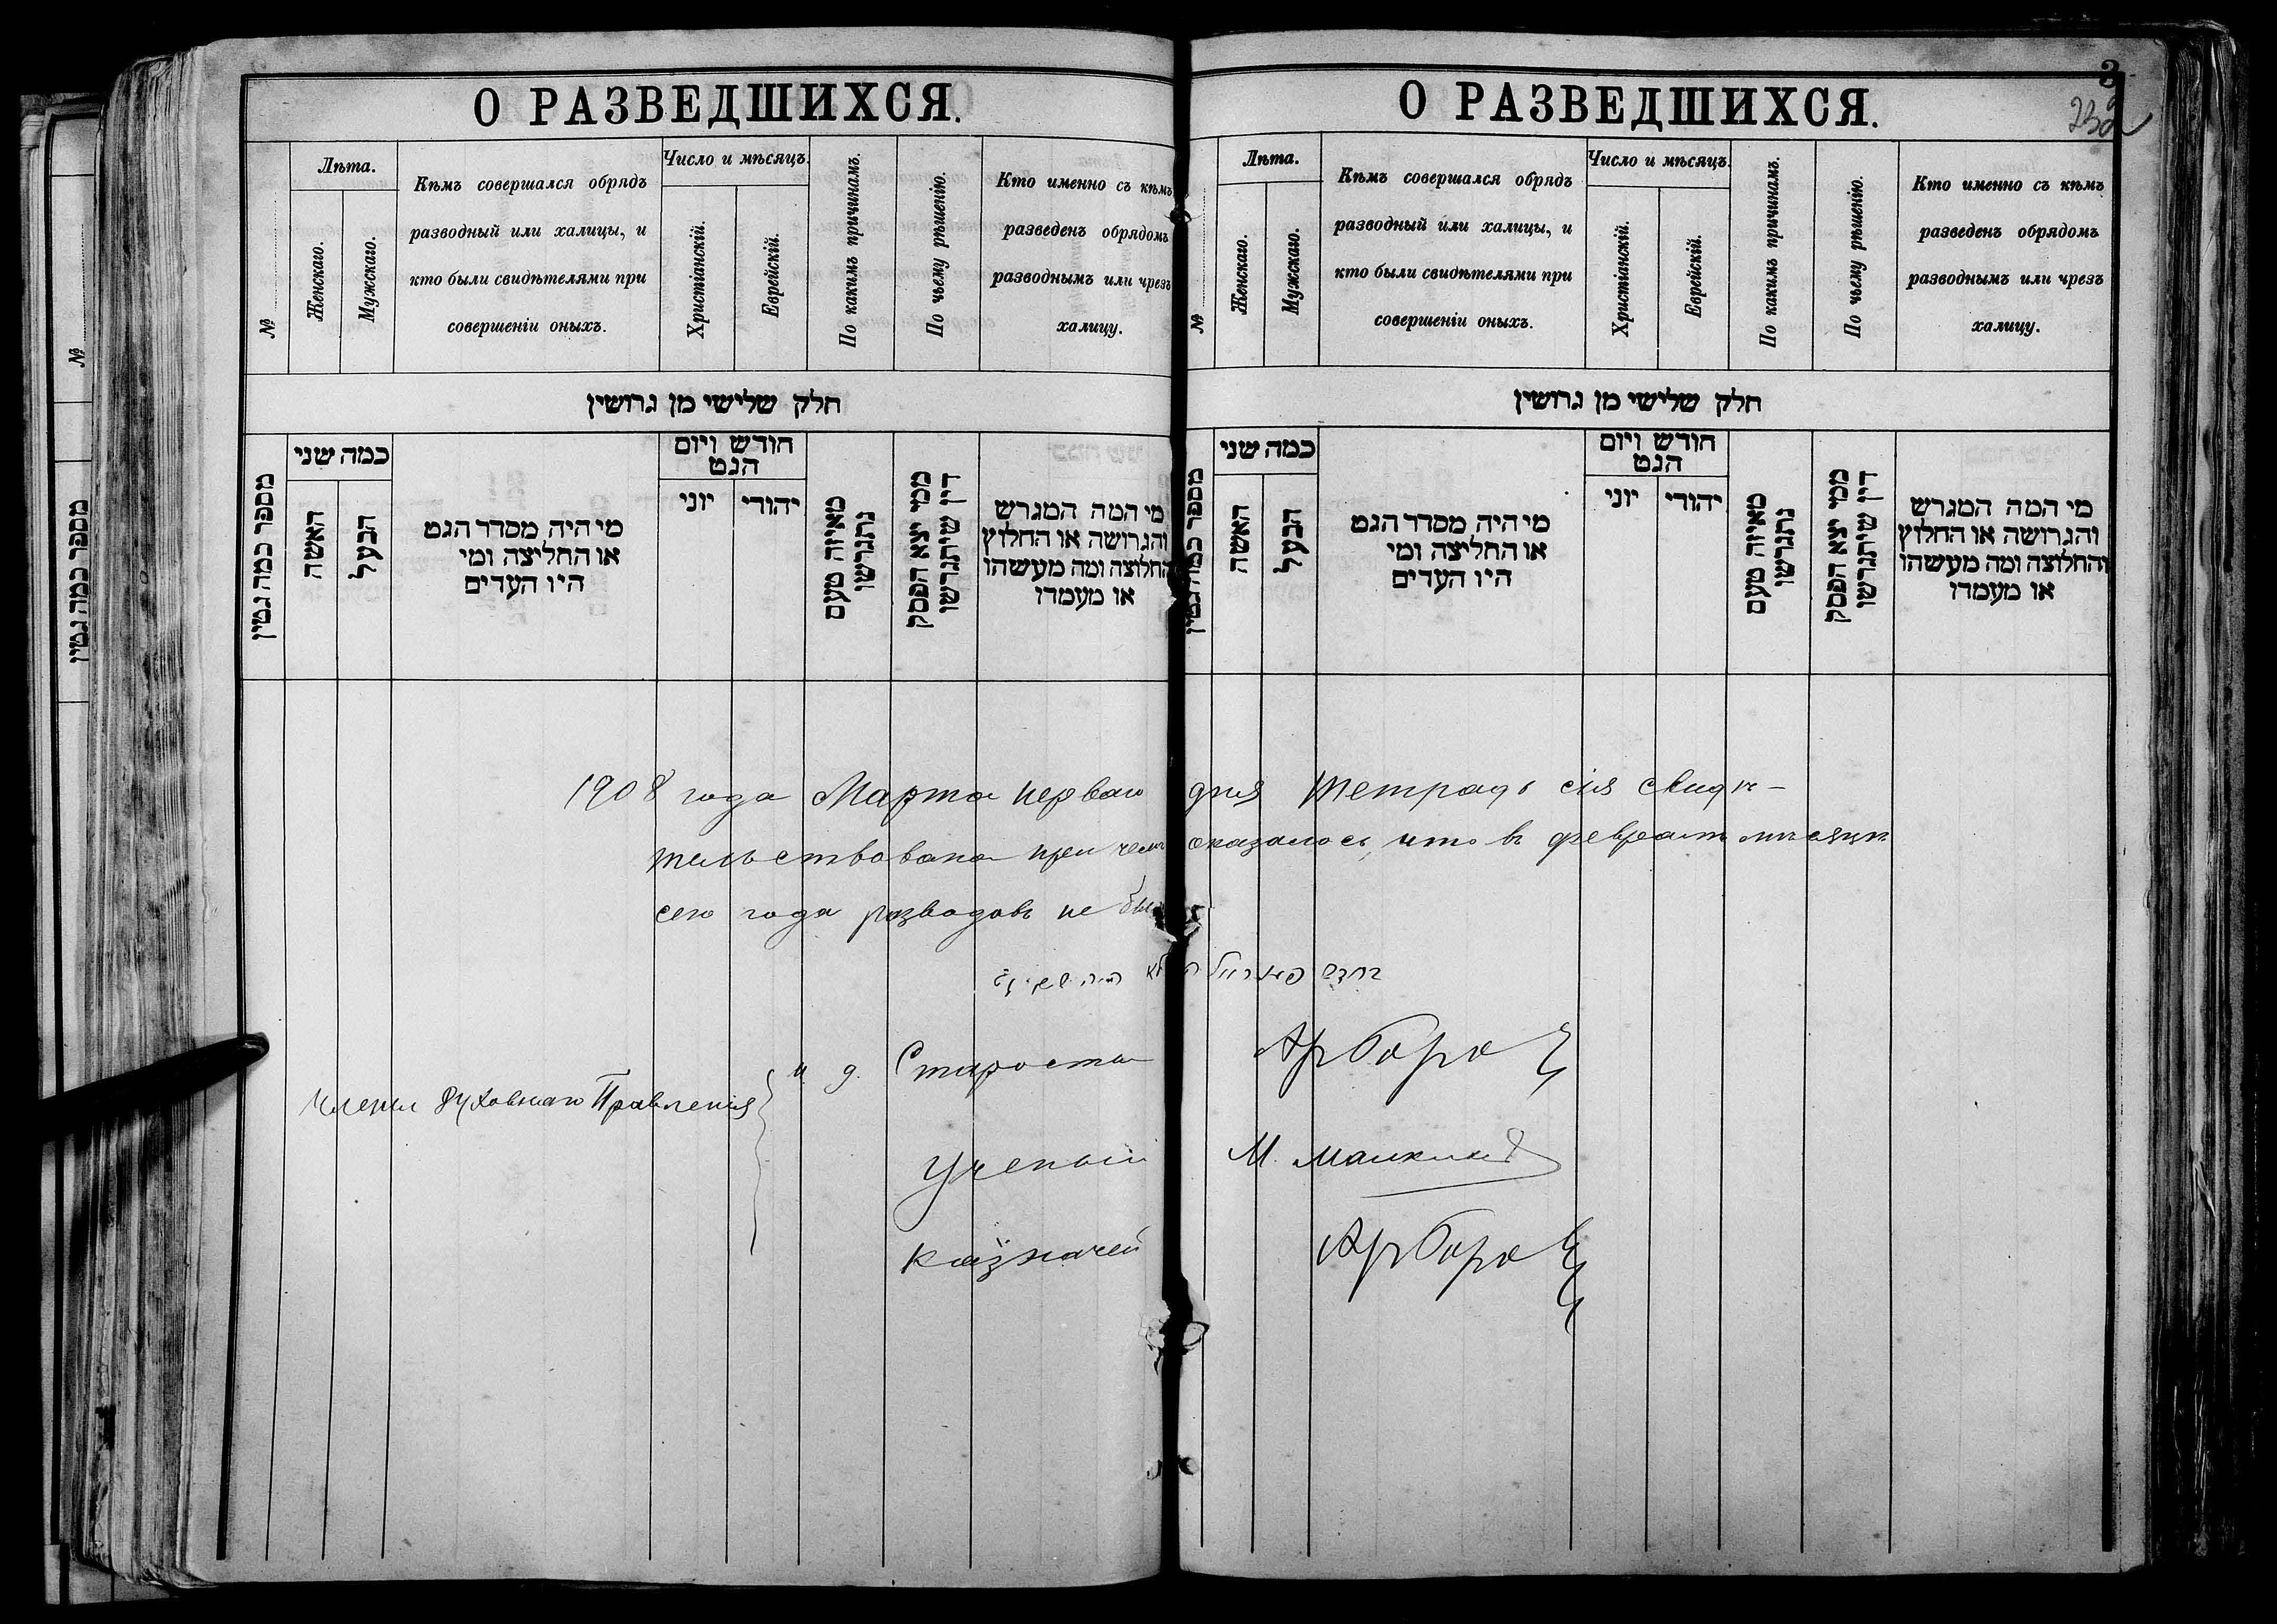 О РАЗВЕДШИХСЯ.
№
Лѣта.
Женскаго.
Мужскаго.
Кѣмъ совершался обрядъ
разводный или халицы, и
кто были свидѣтелями при
совершеніи оныхъ.
Число и мѣсяцъ.
Христіанскій.
Еврейскій.
По какимъ причинамъ.
По чьему рѣшенію.
Кто именно съ кѣмъ
разведенъ обрядомъ
разводнымъ или чрезъ
халицу.
חלק שלישי מן גרושין
מספר כמה גטין
כמה שני
האשה
הבעל
מי היה מסדר הגט
או החליצה ומי
היו העדים
חודש ויום
הגט
יוני
יהודי
מאיזה טעם
נתגרשו
ממי יצא הפסק
דין שיתגרשו
מי המה המגרש
והגרושה או החלוץ
והחלוצה ומה מעשהו
או מעמדו
О РАЗВЕДШИХСЯ.
3
232
№
Лѣта.
Женскаго.
Мужскаго.
Кѣмъ совершался обрядъ
разводный или халицы, и
кто были свидѣтелями при
совершеніи оныхъ.
Число и мѣсяцъ.
Христіанскій.
Еврейскій.
По какимъ причинамъ.
По чьему рѣшенію.
Кто именно съ кѣмъ
разведенъ обрядомъ
разводнымъ или чрезъ
халицу.
חלק שלישי מן גרושין
מספר כמה גטין
כמה שני
האשה
הבעל
מי היה מסדר הגט
או החליצה ומי
היו העדים
חודש ויום
הגט
יוני
יהודי
מאיזה טעם
נתגרשו
ממי יצא הפסק
דין שיתגרשו
מי המה המגרש
והגרושה או החלוץ
והחלוצה ומה מעשהו
או מעמדו
1908 года Марта перваго дня тетрадь сія свидѣ-
тельствована при чемъ оказалось, что въ февралѣ мѣсяцѣ
сего года разводовъ не
Члены Духовнаго Правленія
и. д. Староста
Ученый М.
Казначей
№
מספר כמה גטין